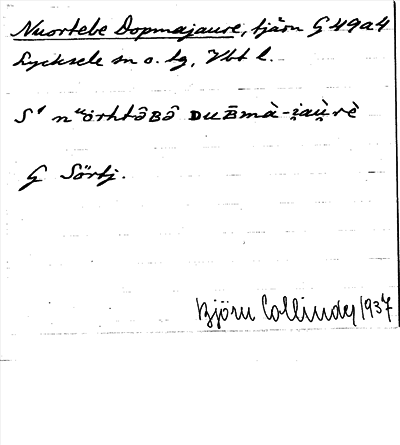 Nuortebe Dopmajaure, tjärn G 49a4
Lycksele sn o. tg, Vbt l.
S' nᵘörhtəBə DuB̄mà-i̯au̯rè
G Sörtj.
Björn Collinder 1937